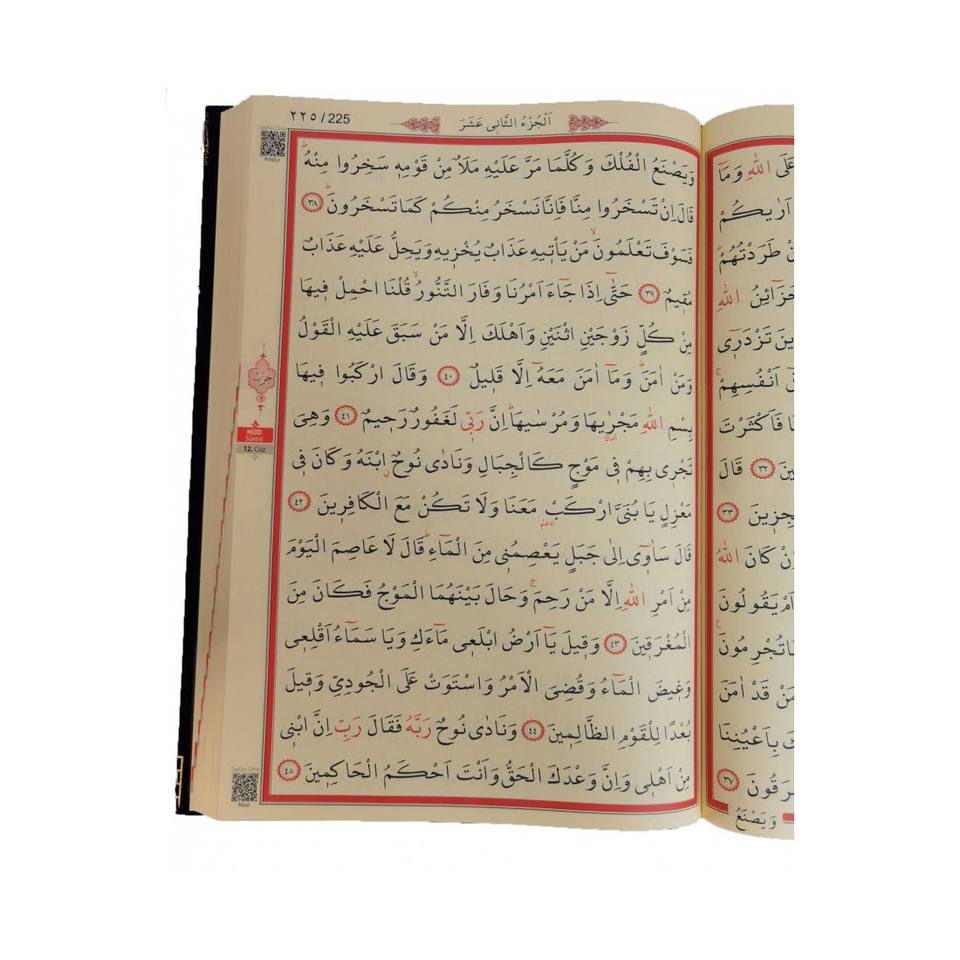 ٢٢٥ / 225
اَلْجُزْءُ الثَّانٖى عَشَرَ
وَيَصْنَعُ الْفُلْكَ وَكُلَّمَا مَرَّ عَلَيْهِ مَلَاٌ مِنْ قَوْمِهٖ سَخِرُوا مِنْهُ
قَالَ اِنْ تَسْخَرُوا مِنَّا فَاِنَّا نَسْخَرُ مِنْكُمْ كَمَا تَسْخَرُونَ ٣٨
فَسَوْفَ تَعْلَمُونَ مَنْ يَاْتٖيهِ عَذَابٌ يُخْزٖيهِ وَيَحِلُّ عَلَيْهِ عَذَابٌ
مُقٖيمٌ ٣٩ حَتّٰٓى اِذَا جَٓاءَ اَمْرُنَا وَفَارَ التَّنُّورُ قُلْنَا احْمِلْ فٖيهَا
مِنْ كُلٍّ زَوْجَيْنِ اثْنَيْنِ وَاَهْلَكَ اِلَّا مَنْ سَبَقَ عَلَيْهِ الْقَوْلُ
وَمَنْ اٰمَنَ وَمَٓا اٰمَنَ مَعَهُٓ اِلَّا قَلٖيلٌ ٤٠ وَقَالَ ارْكَبُوا فٖيهَا
بِسْمِ اللّٰهِ مَجْرٰۭيهَا وَمُرْسٰيهَا اِنَّ رَبّٖى لَغَفُورٌ رَحٖيمٌ ٤١ وَهِىَ
تَجْرٖى بِهِمْ فٖى مَوْجٍ كَالْجِبَالِ وَنَادٰى نُوحٌ ابْنَهُ وَكَانَ فٖى
مَعْزِلٍ يَا بُنَىَّ ارْكَبْ مَعَنَا وَلَا تَكُنْ مَعَ الْكَافِرٖينَ ٤٢
قَالَ سَاٰوٖٓى اِلٰى جَبَلٍ يَعْصِمُنٖى مِنَ الْمَٓاءِ قَالَ لَا عَاصِمَ الْيَوْمَ
مِنْ اَمْرِ اللّٰهِ اِلَّا مَنْ رَحِمَ وَحَالَ بَيْنَهُمَا الْمَوْجُ فَكَانَ مِنَ
الْمُغْرَقٖينَ ٤٣ وَقٖيلَ يَٓا اَرْضُ ابْلَعٖى مَٓاءَكِ وَيَا سَمَٓاءُ اَقْلِعٖى
وَغٖيضَ الْمَٓاءُ وَقُضِىَ الْاَمْرُ وَاسْتَوَتْ عَلَى الْجُودِىِّ وَقٖيلَ
بُعْدًا لِلْقَوْمِ الظَّالِمٖينَ ٤٤ وَنَادٰى نُوحٌ رَبَّهُ فَقَالَ رَبِّ اِنَّ ابْنٖى
مِنْ اَهْلٖى وَاِنَّ وَعْدَكَ الْحَقُّ وَاَنْتَ اَحْكَمُ الْحَاكِمٖينَ ٤٥
HÛD
Sûresi
12. Cüz
Meal
عَلَى اللّٰهِ وَمَٓا
اَرٰيكُمْ
طَرَدْتُهُمْ
خَزَٓائِنُ اللّٰهِ
تَزْدَرٖٓى
اَنْفُسِهِمْ
فَاَكْثَرْتَ
٣٢ قَالَ
٣٣
كَانَ اللّٰهُ
اَمْ يَقُولُونَ
تُجْرِمُونَ
مَنْ قَدْ اٰمَنَ
بِاَعْيُنِنَا
٣٧
وَيَصْنَعُ